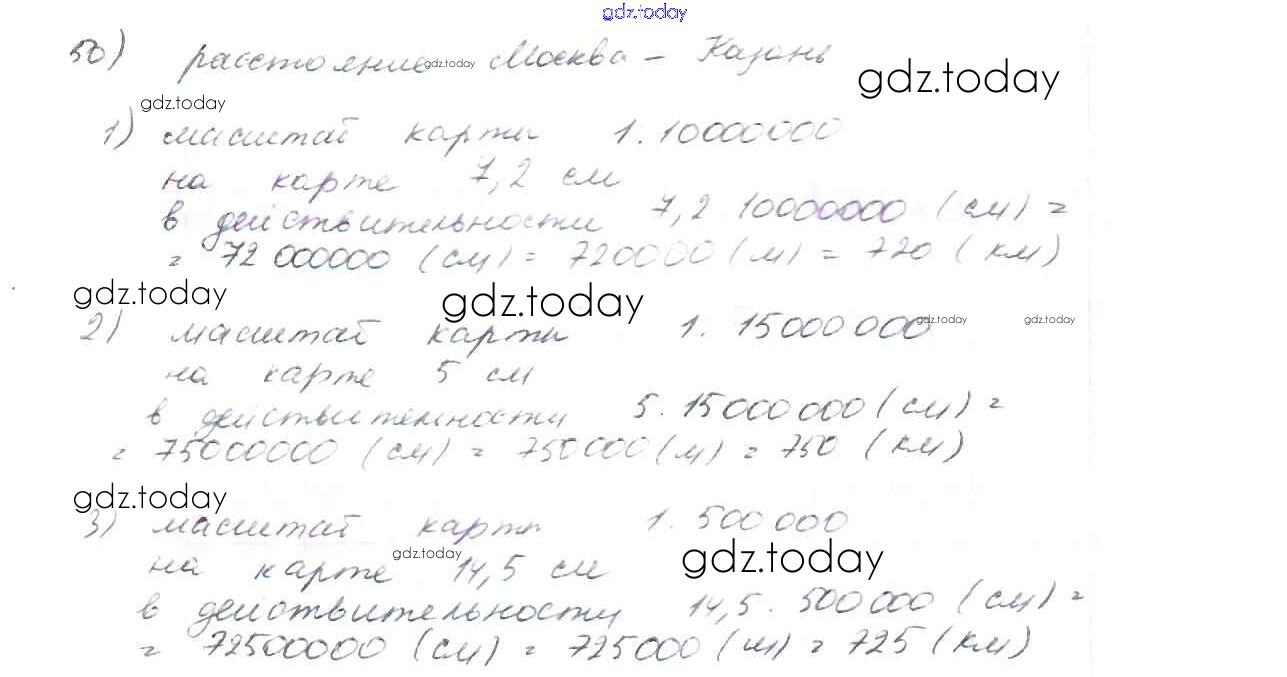 gdz.today
50) расстояние gdz.today Москва - Казань
gdz.today
gdz.today
1) масштаб карты 1.10000000
на карте 7,2 см
в действительности 7,2 10000000 (см) =
= 72 000000 (см) = 720000 (м) = 720 (км)
gdz.today gdz.today
2) масштаб карты 1. 15000 000 gdz.today gdz.today
на карте 5 см
в действительности 5. 15000 000 (см) =
= 75000000 (см) = 750000 (м) = 750 (км)
gdz.today
3) масштаб карты 1. 500 000
gdz.today gdz.today
на карте 14,5 см
в действительности 14,5. 500 000 (см) =
= 72500000 (см) = 725000 (м) = 725 (км)